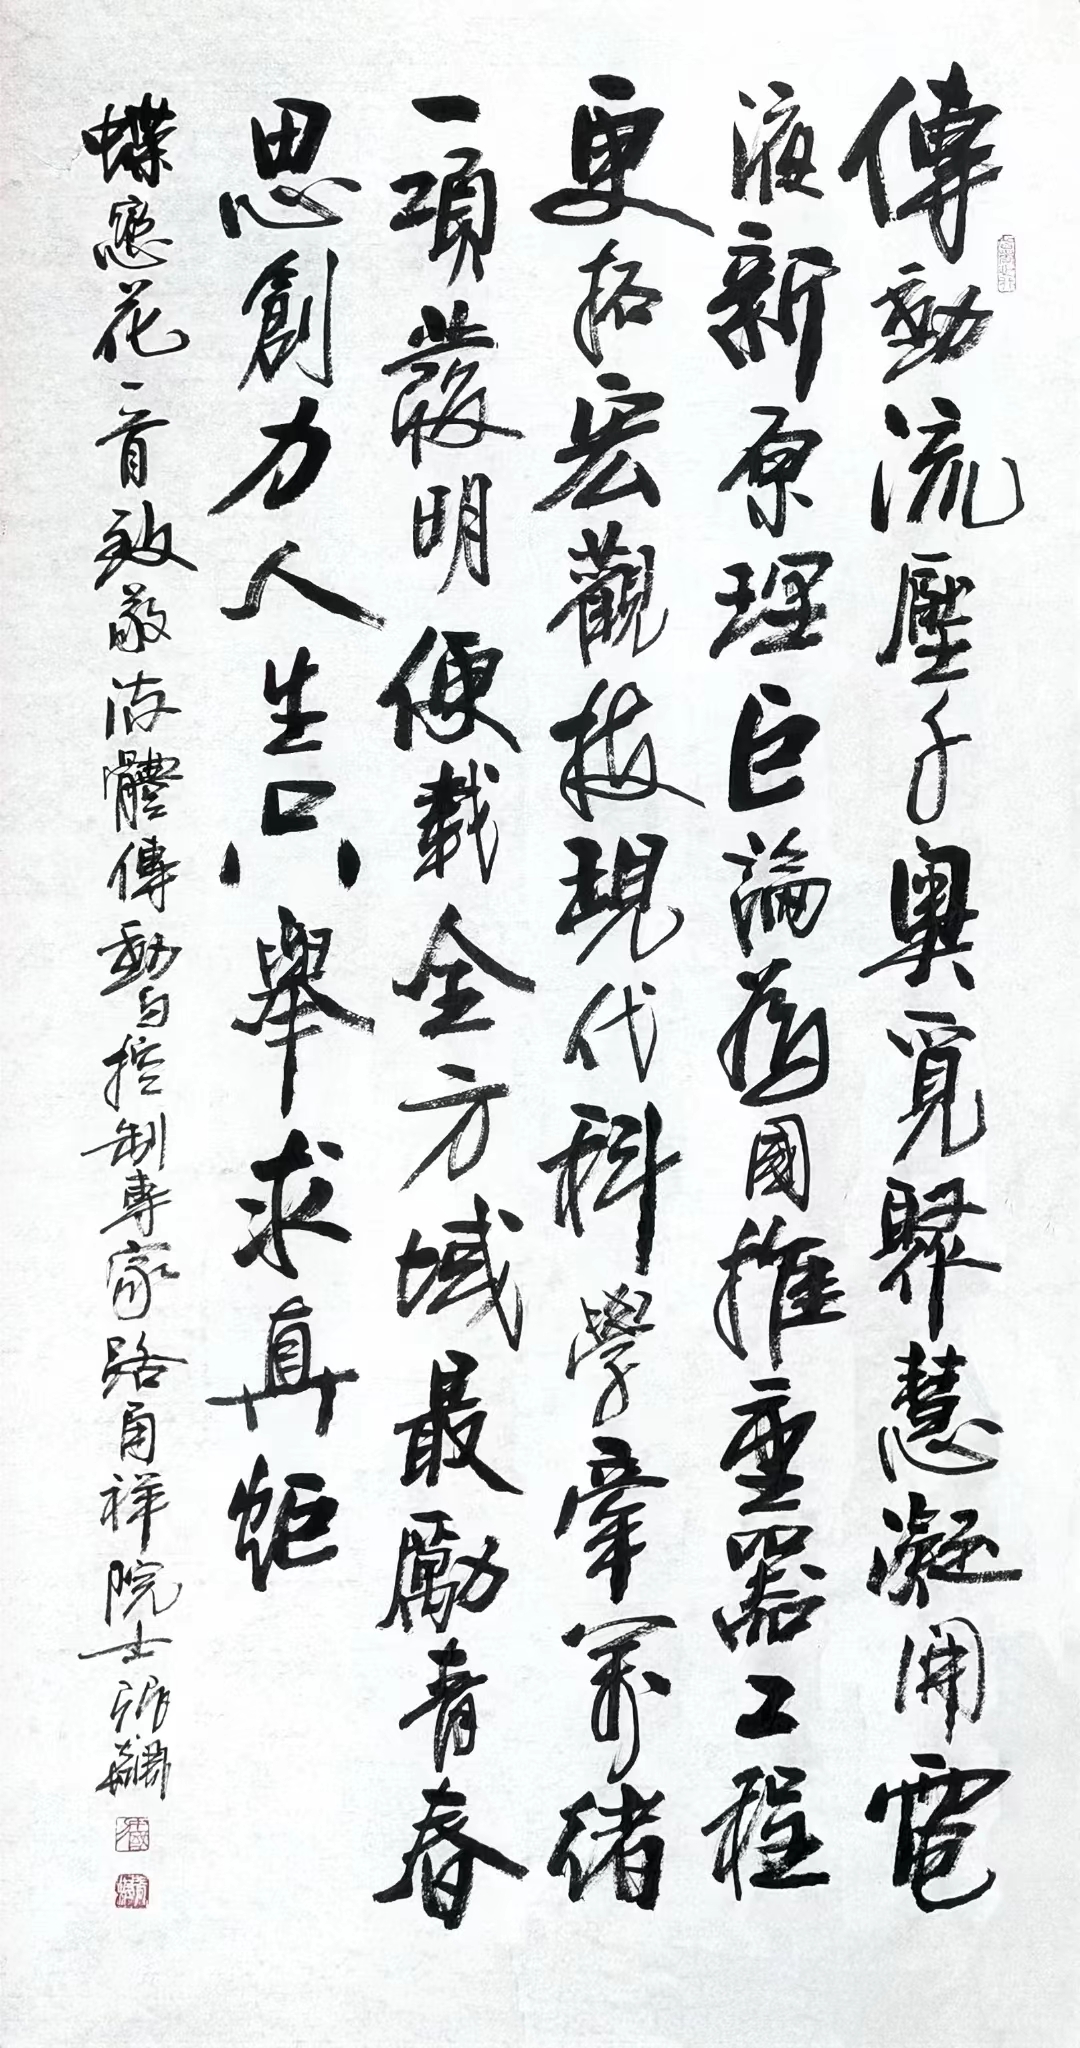 傳動流壓千奧覓聚慧凝開電
液新原理巨論為國推重器工程
更拓宏觀技現代科學牽萬緒
一項發明便載全方域最勵青春
思創力人生只舉求真炬
蝶戀花一首致敬流體傳動与控制專家路甬祥院士張飆